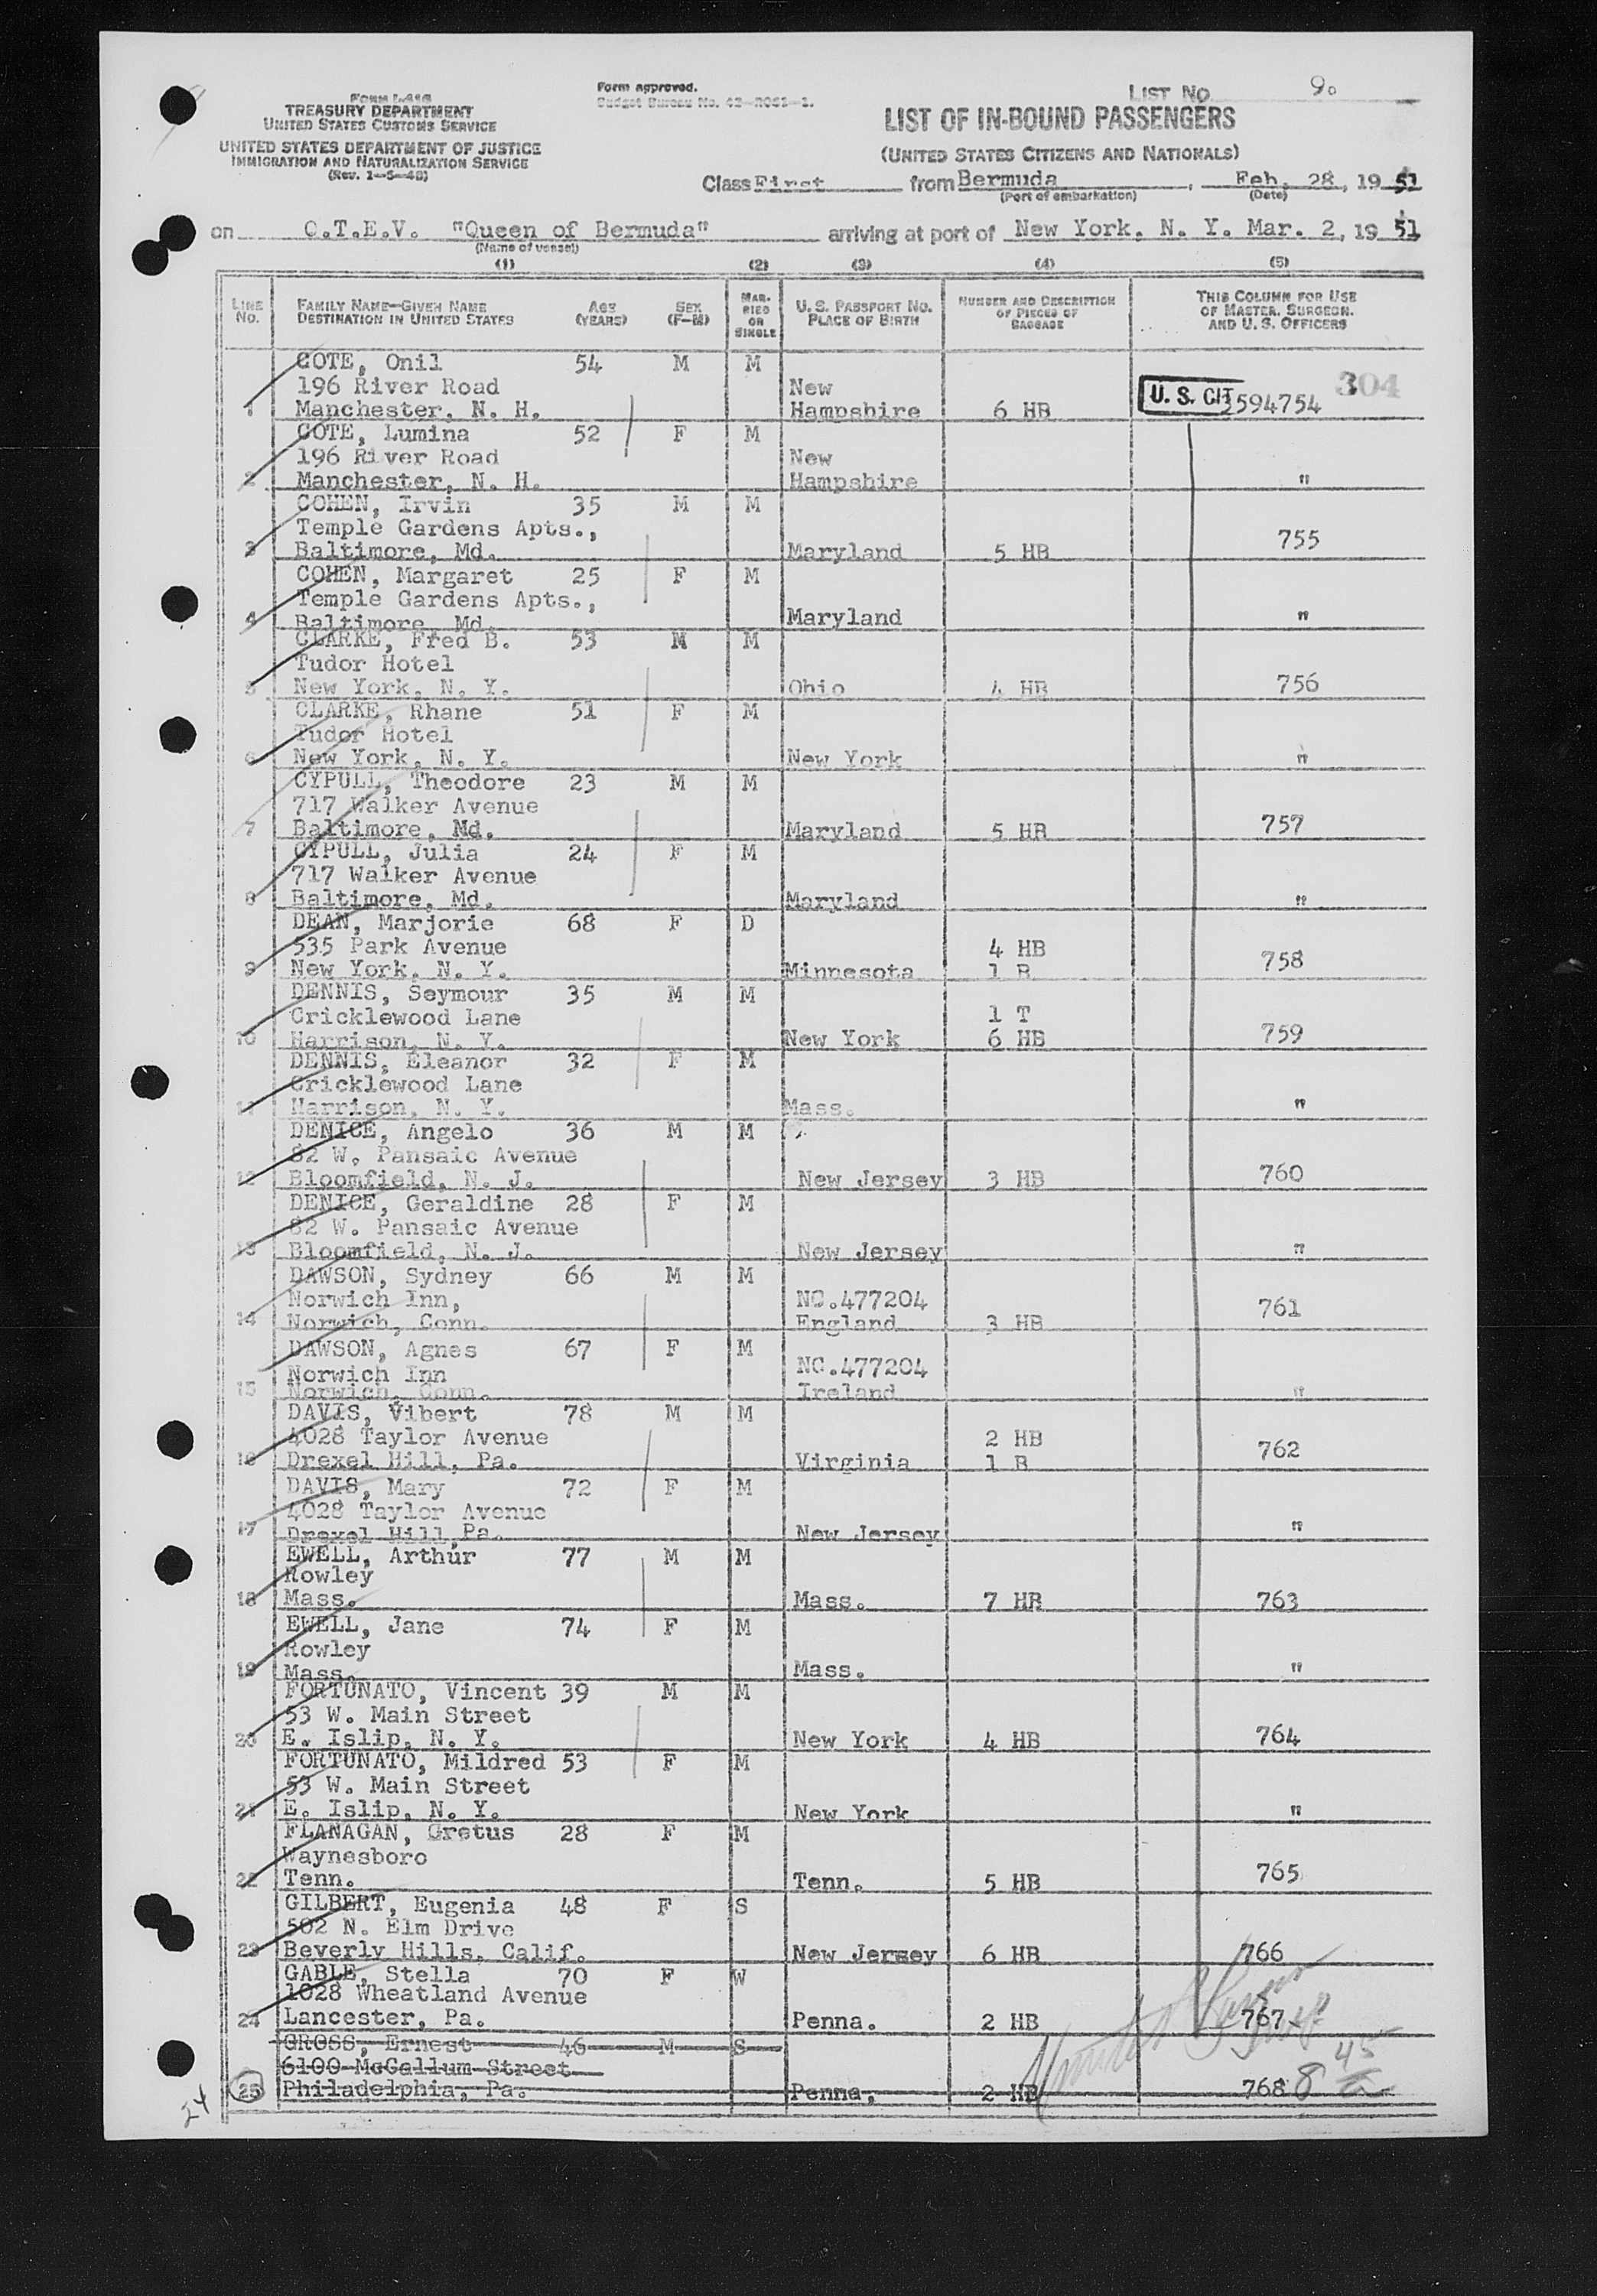 LIST NO. 90
FORM I-416
Form approved.
TREASURY DEPARTMENT
Budget Bureau No. 43-R061-1.
UNITED STATES CUSTOMS SERVICE
UNITED STATES DEPARTMENT OF JUSTICE
IMMIGRATION AND NATURALIZATION SERVICE
(Rev. 1-5-48)
LIST OF IN-BOUND PASSENGERS
(UNITED STATES CITIZENS AND NATIONALS)
Class First from Bermuda, Feb. 28, 1951
(Port of embarkation) (Date)
on Q.T.E.V. "Queen of Bermuda" arriving at port of New York, N. Y. Mar. 2, 1951
(Name of vessel)
(1) (2) (3) (4) (5)
LINE No. FAMILY NAME—GIVEN NAME DESTINATION IN UNITED STATES AGE (YEARS) SEX (F-M) MARRIED OR SINGLE U. S. PASSPORT NO. PLACE OF BIRTH NUMBER AND DESCRIPTION OF PIECES OF BAGGAGE THIS COLUMN FOR USE OF MASTER, SURGEON, AND U. S. OFFICERS
COTE, Onil 54 M M
196 River Road New 304
1 Manchester, N. H. Hampshire 6 HB U. S. CIT 594754
COTE, Lumina 52 F M
196 River Road New
2 Manchester, N. H. Hampshire "
COHEN, Irvin 35 M M
Temple Gardens Apts.,
3 Baltimore, Md. Maryland 5 HB 755
COHEN, Margaret 25 F M
Temple Gardens Apts.,
4 Baltimore, Md. Maryland "
CLARKE, Fred B. 53 M M
Tudor Hotel
5 New York, N. Y. Ohio 4 HB 756
CLARKE, Rhane 51 F M
Tudor Hotel
6 New York, N. Y. New York "
CYPULL, Theodore 23 M M
717 Walker Avenue
7 Baltimore, Md. Maryland 5 HB 757
CYPULL, Julia 24 F M
717 Walker Avenue
8 Baltimore, Md. Maryland "
DEAN, Marjorie 68 F D
535 Park Avenue 4 HB
9 New York, N. Y. Minnesota 1 B 758
DENNIS, Seymour 35 M M
Cricklewood Lane 1 T
10 Harrison, N. Y. New York 6 HB 759
DENNIS, Eleanor 32 F M
Cricklewood Lane
11 Harrison, N. Y. Mass. "
DENICE, Angelo 36 M M
82 W. Pansaic Avenue
12 Bloomfield, N. J. New Jersey 3 HB 760
DENICE, Geraldine 28 F M
82 W. Pansaic Avenue
13 Bloomfield, N. J. New Jersey "
DAWSON, Sydney 66 M M
Norwich Inn, NO.477204
14 Norwich, Conn. England 3 HB 761
DAWSON, Agnes 67 F M
Norwich Inn NO.477204
15 Norwich, Conn. Ireland "
DAVIS, Vibert 78 M M
4028 Taylor Avenue 2 HB
16 Drexel Hill, Pa. Virginia 1 B 762
DAVIS, Mary 72 F M
4028 Taylor Avenue
17 Drexel Hill, Pa. New Jersey "
EWELL, Arthur 77 M M
Rowley
18 Mass. Mass. 7 HB 763
EWELL, Jane 74 F M
Rowley
19 Mass. Mass. "
FORTUNATO, Vincent 39 M M
53 W. Main Street
20 E. Islip, N. Y. New York 4 HB 764
FORTUNATO, Mildred 53 F M
53 W. Main Street
21 E. Islip, N. Y. New York "
FLANAGAN, Cretus 28 F M
Waynesboro
22 Tenn. Tenn. 5 HB 765
GILBERT, Eugenia 48 F S
502 N. Elm Drive
23 Beverly Hills, Calif. New Jersey 6 HB 766
GABLE, Stella 70 F W
1028 Wheatland Avenue
24 Lancester, Pa. Penna. 2 HB 767
GROSS, Ernest 46 M S
6100 McCallum Street 45
25 Philadelphia, Pa. Penna. 2 HB 768 8
24